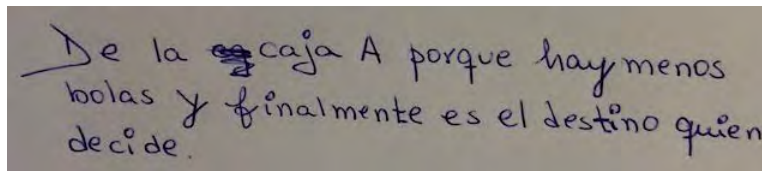 De la caja A porque hay menos
bolas y finalmente es el destino quien
decide.